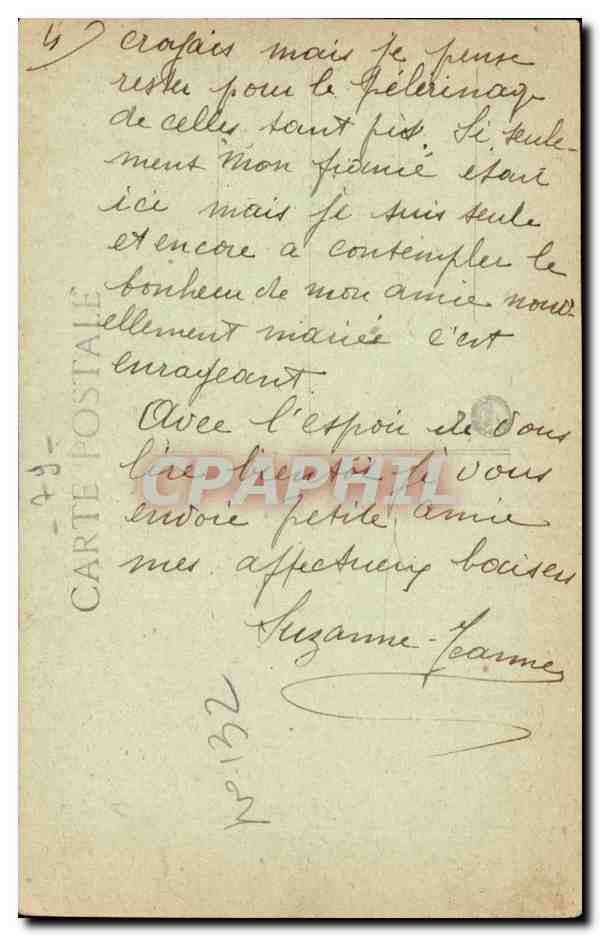 4)
crogais mais je pense
rester pour le Pélerinage
de celles tant pis. Si seule-
ment mon fiancé était
ici mais je suis seule
et encore a contempler le
bonheur de mon amie nouv-
ellement mariée c'est
enrageant.
Avec l'espoir de vous
lire bientôt je vous
envoie petite amie
mes affectueux baisers
Suzanne-Jeanne
CARTE POSTALE
- 79 -
No 132
CPAPHIL